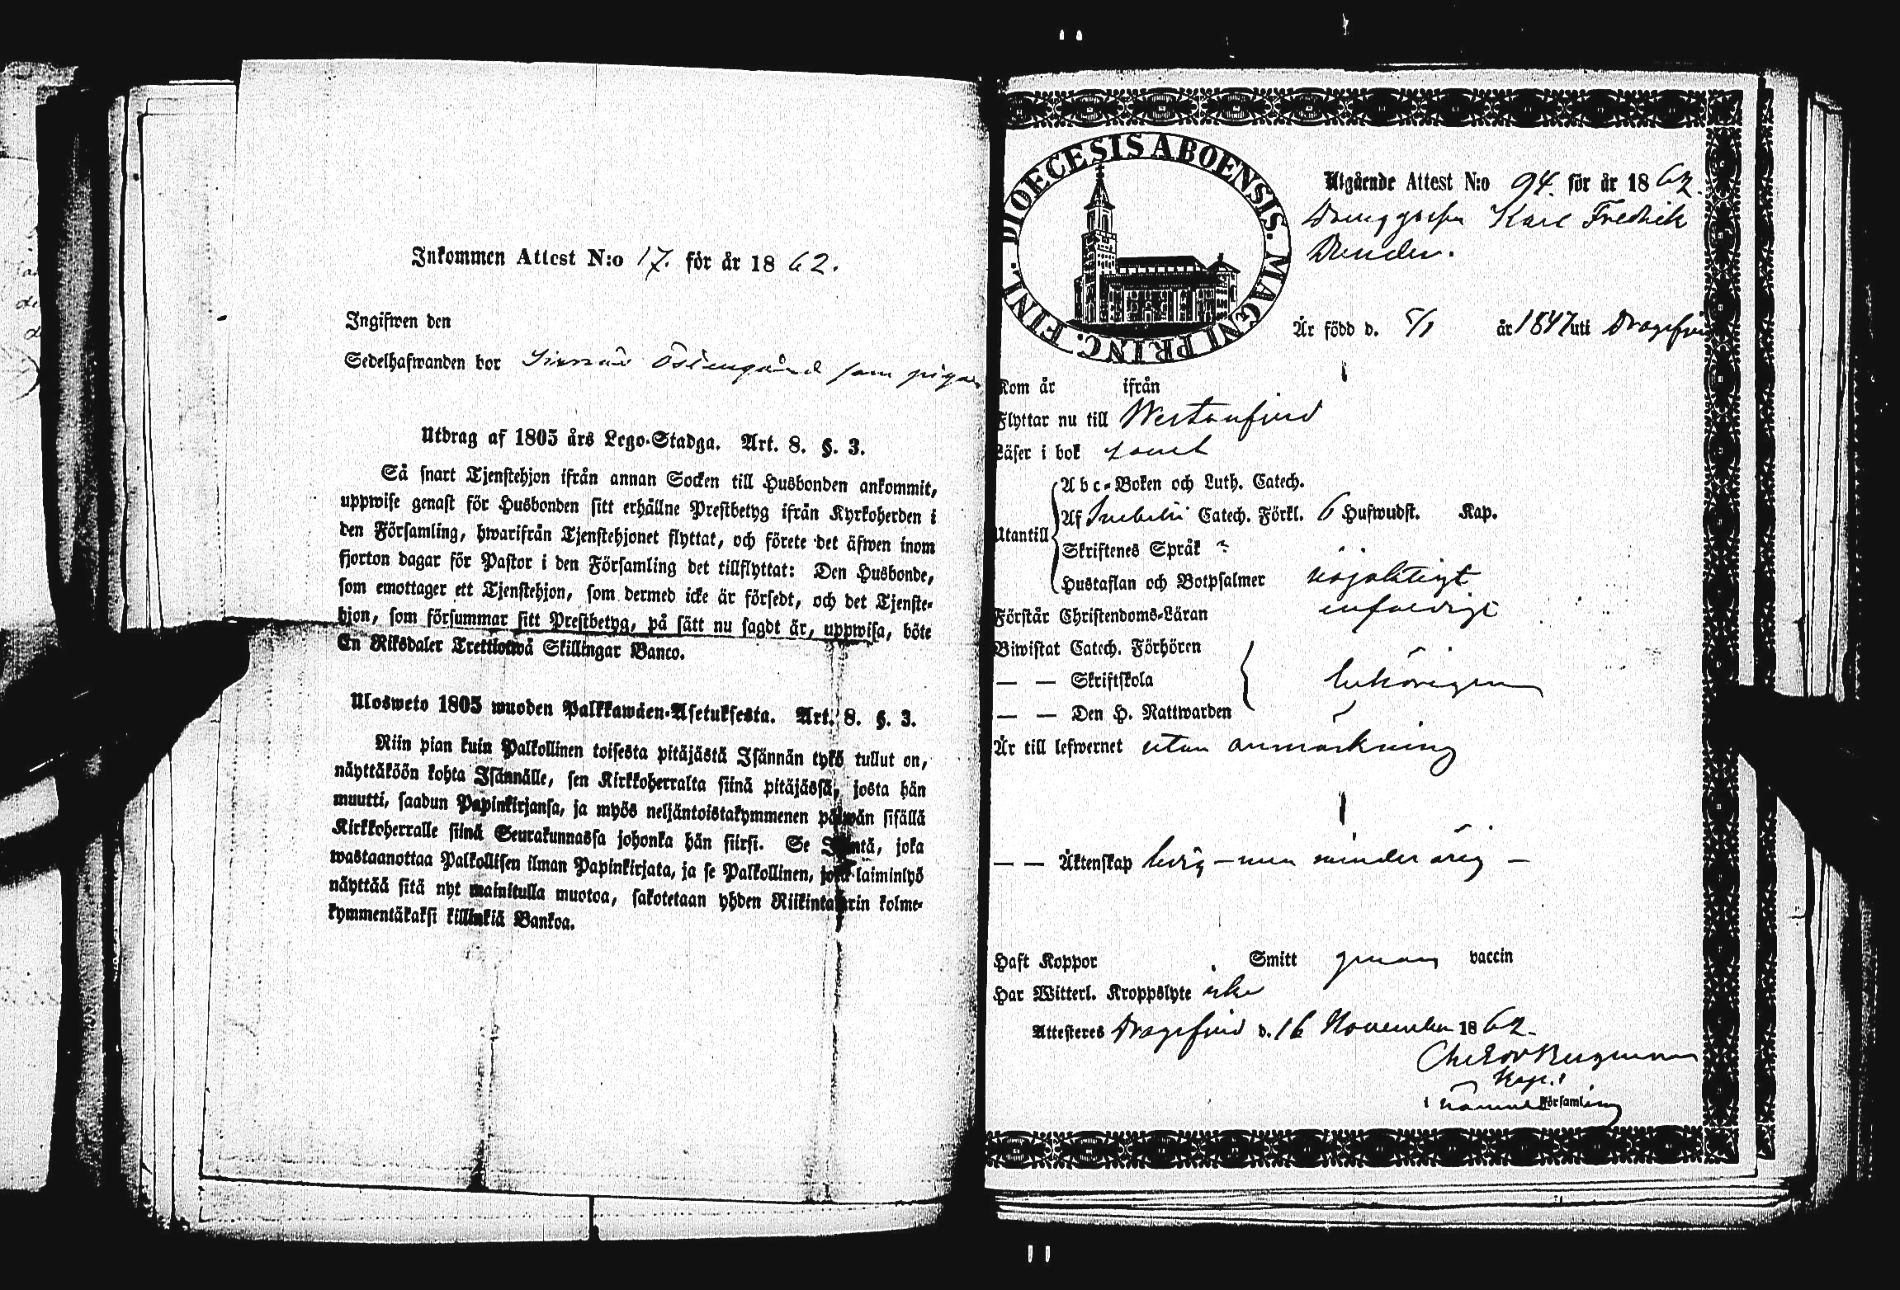 Inkommen Attest N:o 17. för år 1862.
Ingifwen den
Sedelhafwanden bor Östergård som piga
Utdrag af 1805 års Lego-Stadga. Art. 8. §. 3.
Så snart Tjenstehjon ifrån annan Socken till Husbonden ankommit,
uppwise genast för Husbonden sitt erhållne Prestbetyg ifrån Kyrkoherden i
den Församling, hwarifrån Tjenstehjonet flyttat, och förete det äfwen inom
fjorton dagar för Pastor i den Församling det tillflyttat: Den Husbonde,
som emottager ett Tjenstehjon, som dermed icke är försedt, och det Tjenste-
hjon, som försummar sitt Prestbetyg, på sätt nu sagdt är, uppwisa, böte
En Riksdaler Trettiotwå Skillingar Banco.
Ulosweto 1805 wuoden Palkkawäen-Asetuksesta. Art. 8. §. 3.
Niin pian kuin Palkollinen toisesta pitäjästä Isännän tykö tullut on,
näyttäköön kohta Isännälle, sen Kirkkoherralta siinä pitäjässä, josta hän
muutti, saadun Papinkirjansa, ja myös neljäntoistakymmenen päiwän sisällä
Kirkkoherralle siinä Seurakunnassa johonka hän siirsi. Se Isäntä, joka
wastaanottaa Palkollisen ilman Papinkirjata, ja se Palkollinen, joka laiminlyö
näyttää sitä nyt mainitulla muotoa, sakotetaan yhden Riikintalarin kolme-
kymmentäkaksi killinkiä Bankoa.
DIOECESIS ABOENSIS. MAGNI PRINC. FINL.
Utgående Attest N:o 94. för år 1862.
Drenggossen Karl Fredrik
Är född d. 5/1 år 1847 uti Dragsfjerd
Kom år ifrån
Flyttar nu till Westanfjerd
Läser i bok
Utantill
Abc-Boken och Luth. Catech.
Af Svebelii Catech. Förkl. 6 Hufwudst. Kap.
Skriftenes Språk
Hustaflan och Botpsalmer nöjaktigt
Förstår Christendoms-Läran enfaldigt
Biwistat Catech. Förhören
— — Skriftskola behörigen
— — Den H. Nattwarden
Är till lefwernet utan anmärkning
— — Äktenskap ledig — men minderårig —
Haft Koppor Smitt genom vaccin
Har Witterl. Kroppslyte icke
Attesteras Dragsfjerd d. 16 November 1862.
Bergman
Kap.
i nämnde församling